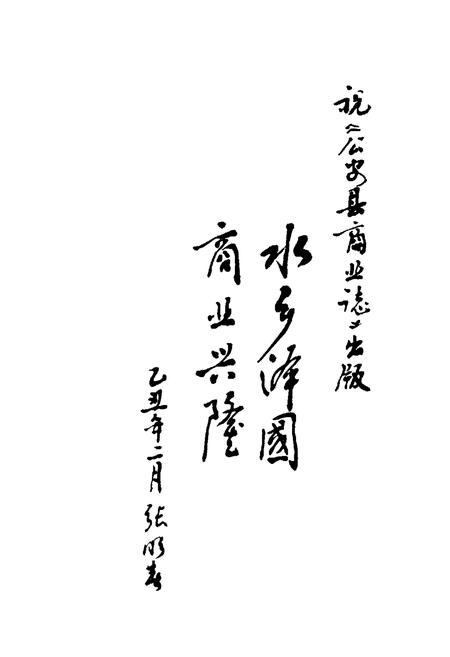 祝《公安县商业誌》出版
水乡泽國
商业兴隆
乙丑年二月 张明春